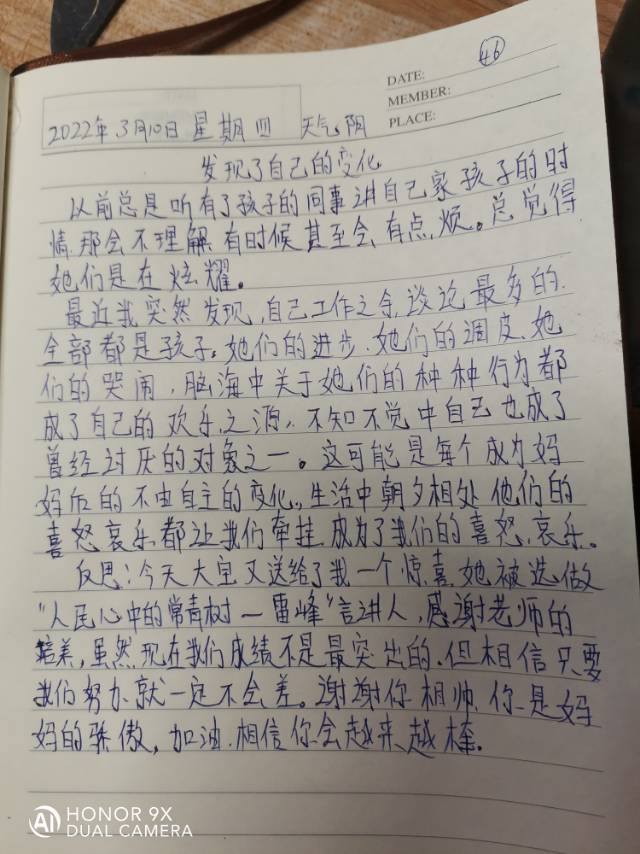 46
DATE:
MEMBER:
PLACE:
2022年3月10日 星期四 天气阴
发现了自己的变化
以前总是听有了孩子的同事讲自己家孩子的时
情,那会不理解,有时候甚至会有点烦。总觉得
她们是在炫耀。
最近我突然发现,自己工作之余,谈论最多的
全部都是孩子。她们的进步、她们的调皮、她
们的哭闹,脑海中关于她们的种种行为都
成了自己的欢乐之源,不知不觉中自己也成了
曾经讨厌的对象之一。这可能是每个成为妈
妈后的不由自主的变化。生活中朝夕相处他们的
喜怒哀乐,都让我们牵挂,成为了我们的喜怒哀乐。
反思:今天大宝又送给了我一个惊喜,她被选做
“人民心中的常青树—雷峰”言讲人,感谢老师的
培养,虽然现在我们成绩不是最突出的,但相信只要
我们努力,就一定不会差。谢谢你相帅,你是妈
妈的骄傲,加油,相信你会越来越棒。
HONOR 9X
DUAL CAMERA